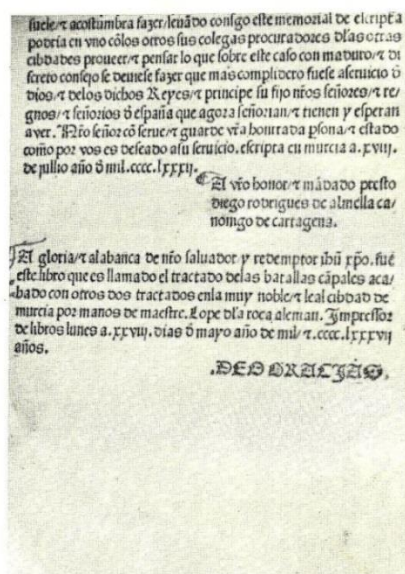 suele/⁊ acostumbra fazer/leuādo consigo este memorial de escripta
podria en vno cōlos otros sus colegas procuradores dlas otras
cibdades proueer/⁊ pensar lo que sobre este caso con maduro/⁊ di
screto consejo se deuiese fazer que mas complidero fuese aseruicio õ
dios/⁊ delos dichos Reyes/⁊ principe su fijo nr̃os señores/⁊ re
gnos/⁊ señorios õ españa que agora señorian/⁊ tienen y esperan
auer. Nr̃o señor cõserue/⁊ guarde vr̃a honrrada p̱sona/⁊ estado
como por vos es deseado asu seruicio. escripta en murcia a.xviij.
de jullio año õ mil.cccc.lxxxij.
A vr̃o honor/⁊ mãdado presto
diego rodrigues de almella ca
nonigo de cartagena.
A gloria/⁊ alabança de nr̃o saluador y redemptor ihũ xp̃o. fue
este libro que es llamado el tractado delas batallas cãpales aca
bado con otros dos tractados enla muy noble/⁊ leal cibdad de
murcia por manos de maestre. Lope dla roca aleman. Jmpressor
de libros lunes a.xxviij. dias õ mayo año de mil/⁊.cccc.lxxxvij
años.
.DEO GRACJAS.